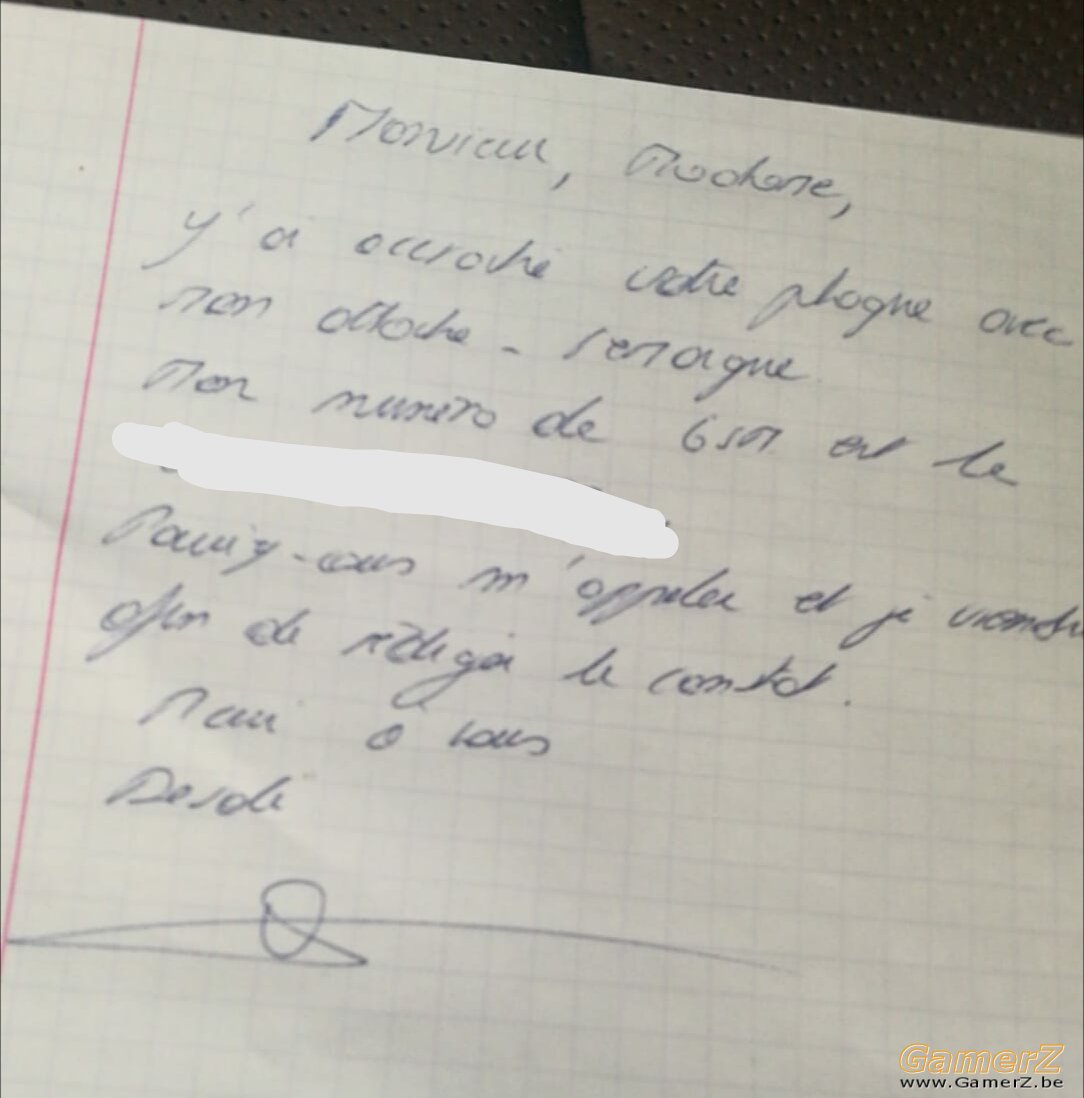 Monsieur, Madame,
j'ai accroché votre plaque avec
mon attache-remorque
Mon numéro de GSM est le
Pouviez-vous m'appeler et je viendrai
afin de rédiger le constat.
Merci à vous
Desolé
GamerZ
www.GamerZ.be